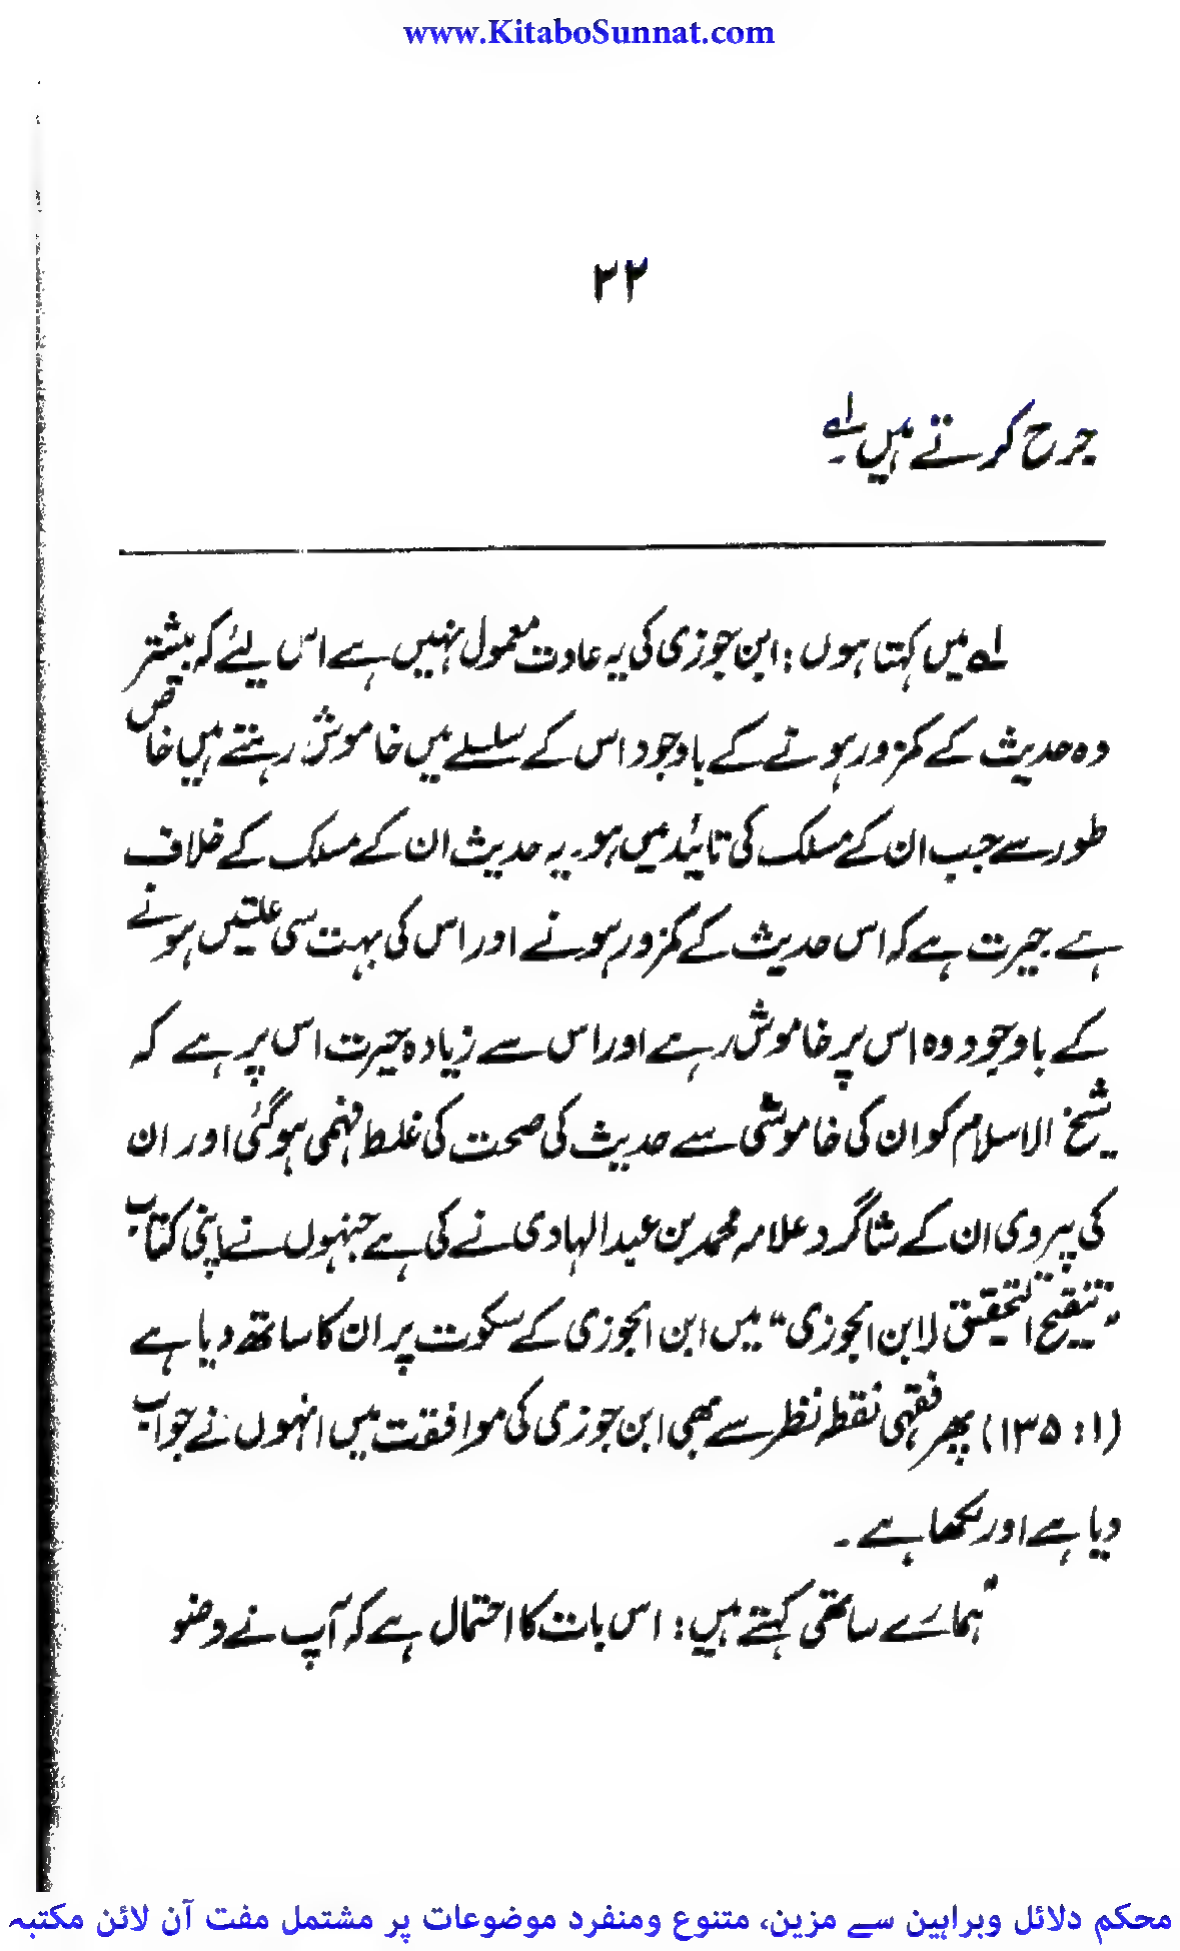 www.KitaboSunnat.com
۲۲
جرح کرتے ہیں لہ
لہ میں کہتا ہوں : ابن جوزی کی یہ عادت معمول نہیں ہے اس لیئے کہ بیشتر
وہ حدیث کے کمزور ہوتے کے باوجود اس کے سلسلے میں خاموش رہتے ہیں خاص
طور سے جب ان کے مسلک کی تائید میں ہو۔ یہ حدیث ان کے مسلک کے خلاف
ہے حیرت ہے کہ اس حدیث کے کمزور ہونے اور اس کی بہت سی علتیں ہونے
کے باوجود وہ اس پر خاموش رہے اور اس سے زیادہ حیرت اس پر ہے کہ
شیخ الاسلام کو ان کی خاموشی سے حدیث کی صحت کی غلط فہمی ہوگئی اور ان
کی پیروی ان کے شاگرد علامہ محمد بن عبدالہادی نے کی ہے جنہوں نے اپنی کتاب
"تنقیح التحقیق لابن الجوزی" میں ابن الجوزی کے سکوت پر ان کا ساتھ دیا ہے
(۱ : ۱۳۵) پھر فقہی نقطہ نظر سے بھی ابن جوزی کی موافقت میں انہوں نے جواب
دیا ہے اور لکھا ہے ۔
"ہمارے ساتھی کہتے ہیں : اس بات کا احتمال ہے کہ آپ نے وضو
محکم دلائل وبراہین سے مزین، متنوع ومنفرد موضوعات پر مشتمل مفت آن لائن مکتبہ